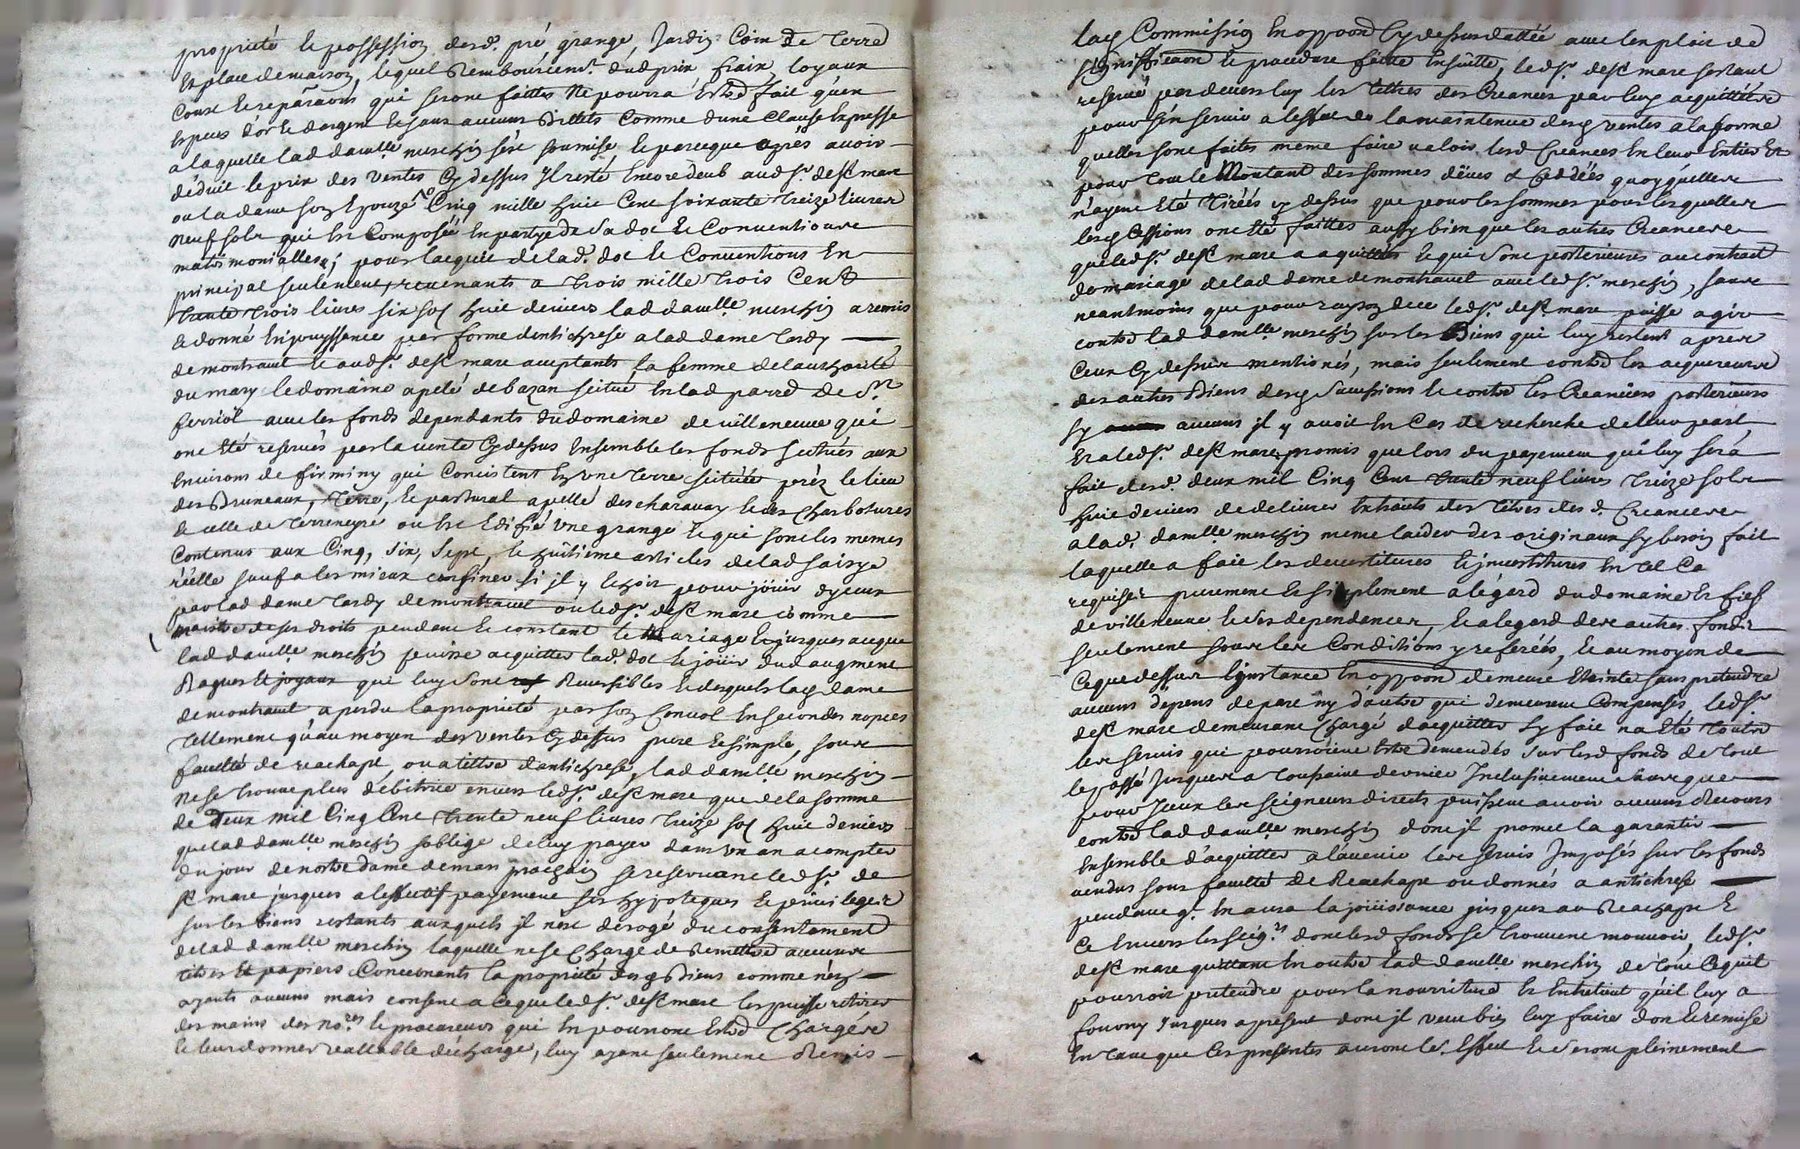 proprieté et possession desd. pré, grange, Jardin Coin de terre
et place de maison, lequel Remboursemt. dud prix frais loyaux
Coux et reparaons qui seront faittes Ne pourra Estre fait qu'en
Especes d'or et dargent et sans aucuns Billets Comme dune Clause Expresse
a laquelle lad damlle. merchin s'est soumise et parceque aprés avoir
déduit le prix des ventes Cy dessus Il reste Encore deub aud sr. de st mare
ou la dame son Epouze Cinq mille huit Cent soixante treize livres
neuf sols qui Est Composée En partye de sa dot et Conventions
matrimonialles, pour lacquit de lad. dot et Conventions En
principal seulement, revenants a trois mille trois Cent
trente trois livres six sols huit deniers lad damlle merchin a remis
et donné En jouyssance par forme dantichrese a lad dame tardy
de montravel et aud sr. de st mare acceptants sa femme de lauthorité
du mary le domaine apelé de bazan scitué En lad parre de St
ferriol avec les fonds dependants du domaine de villeneuve qui
ont Eté reservés par la vente Cy dessus Ensemble les fonds scitués aux
Environs de firminy qui Consistent En Une terre scituée prèz le lieu
des Bruneaux, terre, et pastural apellé des charavay et des Charbotures
et celle de terreneyre ou Est Edifié Une grange et qui sont les memes
Contenus aux Cinq, six, sept, et huitième articles de lad saisye
réelle sauf a les mieux confiner si il y Echoit pour jouir dyceux
par lad dame tardy de montravel ou led sr. de st mare comme
maistre de ses droits pendant et constant le Mariage et jusques a ceque
lad damlle. merchin puisse acquitter lad. dot et jouir dud augment
Bagues et joyaux qui luy sont Reversibles et desquels lad dame
de montravel a perdu la proprieté par son Convol En secondes nopces
tellement qu'au moyen des ventes Cy dessus pure et simple, sous
faculté de reachapt, ou a tiltre dantichrese, lad damlle merchin
ne se trouve plus débitrice envers led sr. de st mare que de la somme
de deux mil Cinq Cent trente neuf livres treize sols huit deniers
que lad damlle merchin soblige de luy payer dans un an a compter
du jour de notre dame de mars prochain se reservant led sr. de
st mare jusques a leffectif payement ses hypoteques et privileges
sur les biens restants auxquels il n'est dérogé du consentement
de lad damlle. merchin laquelle ne se Charge de Remettre aucuns
titres et papiers Concernants la proprieté desd Biens comme n'en
ayants aucuns mais consent a ceque led sr. de st mare les puisse retirer
des mains des nores. et procureurs qui En pourront Estre Chargés
et leur donner vallable décharge, luy ayant seulement Remis
lad Commission En oppoon Cy dessus dattée avec lexploit de
signiffication et procedure faitte Ensuitte, led sr. de st mare sestant
reservé par devers luy les tiltres des Creances par luy acquittées
pour s'en servir a leffet de la maintenue desd ventes a la forme
quelles sont faites meme faire valoir lesd Creances En leur Entier Et
pour tout le Montant des sommes deües & Ceddées quoyquelles
n'ayent Eté tirées cy dessus que pour les sommes pour lesquelles
lesd Cessions ont Eté faittes aussy bien que les autres Creances
que led sr. de st mare a aquittés et qui sont posterieures au contrat
de mariage de lad dame de montravel avec led sr. merchin, sans
neantmoins que pour rayson de ce led sr. de st mare puisse agir
contre lad damlle. merchin sur les Biens qui luy restent apres
Ceux Cy dessus mentionés, mais seulement contre les acquereurs
des autres Biens desd Successions et contre les Creanciers posterieurs
sy aucuns il y avoit En Cas de recherche de leur part
Et a led sr. de st mare, promis que lors du payement qui luy sera
fait desd. deux mil Cinq Cent trente neuf livres treize sols
huit deniers de delivrer Extraits des titres desd. Creances
a lad. damlle merchin meme laider des originaux sy besoin fait
laquelle a fait les devestitures et jnvestitures En tel Ca
requises purement Et simplement a légard du domaine Et fief
de villeneuve et ses dependances, Et a legard des autres fonds
seulement sous les Conditions y referées, et au moyen de
Ceque dessus Linstance En oppoon demeure Eteinte sans pretendre
aucuns depens de part ny d'autre qui demeurent Compensés, led sr
de st mare demeurant Chargé dacquitter sy fait n'a Eté toutes
les servis qui pourroient Estre demandés sur lesd fonds de tout
le passé Jusques a toussaint dernier Inclusivement sans que
pour Iceux les seigneurs directs puissent avoir aucuns Recours
contre lad damlle. merchin dont jl promet la garantir
Ensemble d'acquitter a lavenir les servis Imposés sur les fonds
vendus sous faculté de Reachapt ou donnés a antichrese
pendant q. En aura la jouissance jusques au Reachapt &
Ce Envers les seigrs. dont lesd fonds se trouvent mouvoir, led sr.
de st mare quittant En outre lad damlle merchin de tout Cequil
pourroit pretendre pour la nourriture Et Entretient qu'il luy a
fourny Jusques a present dont jl veut bien luy faire don et remise
En tant que les presentes auront leur. Effet et seront pleinement